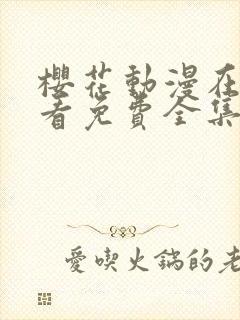 櫻花動漫在
看免費全集
愛喫火鍋的老